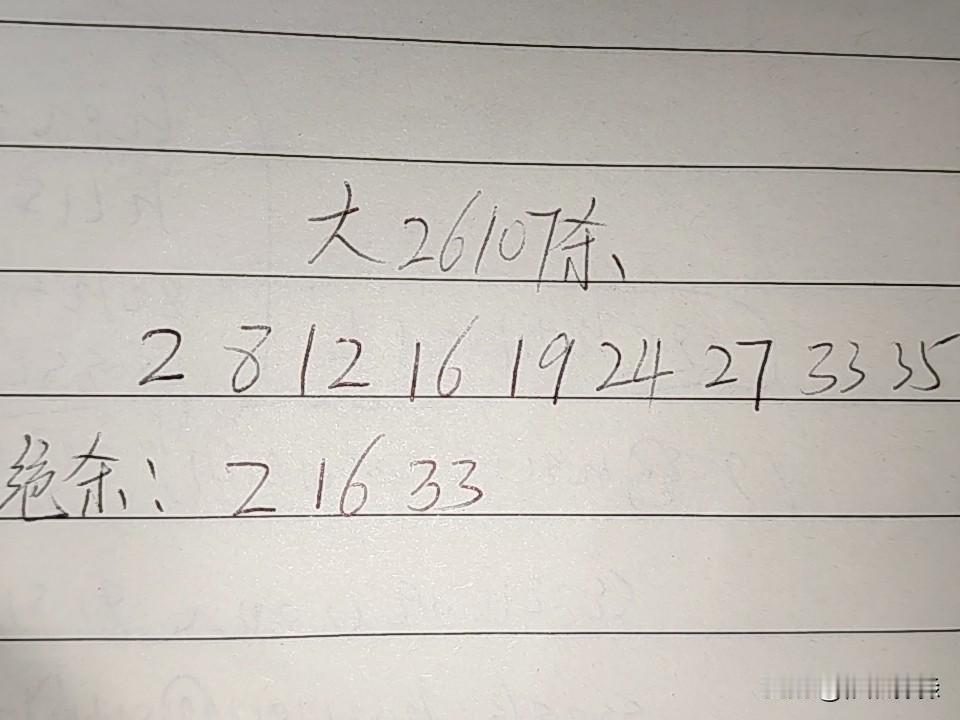 大26107杀、
2 8 12 16 19 24 27 33 35
绝杀: 2 16 33